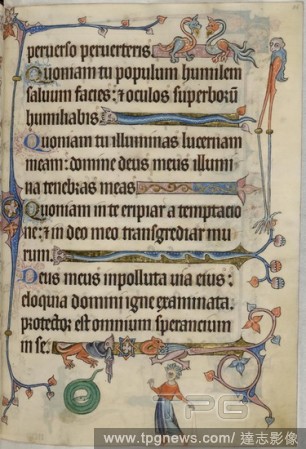 peruerso peruerteris.
Quoniam tu populum humilem
saluum facies: ⁊ oculos superborū
humiliabis
Quoniam tu illuminas lucernam
meam: domine deus meus illumi
na tenebras meas
Quoniam in te eripiar a temptacio
ne: ⁊ in deo meo transgrediar mu
rum.
Deus meus inpolluta uia eius:
eloquia domini igne examinata.
protector est omnium sperancium
in se.
TPG
www.tpgnews.com/ 達志影像